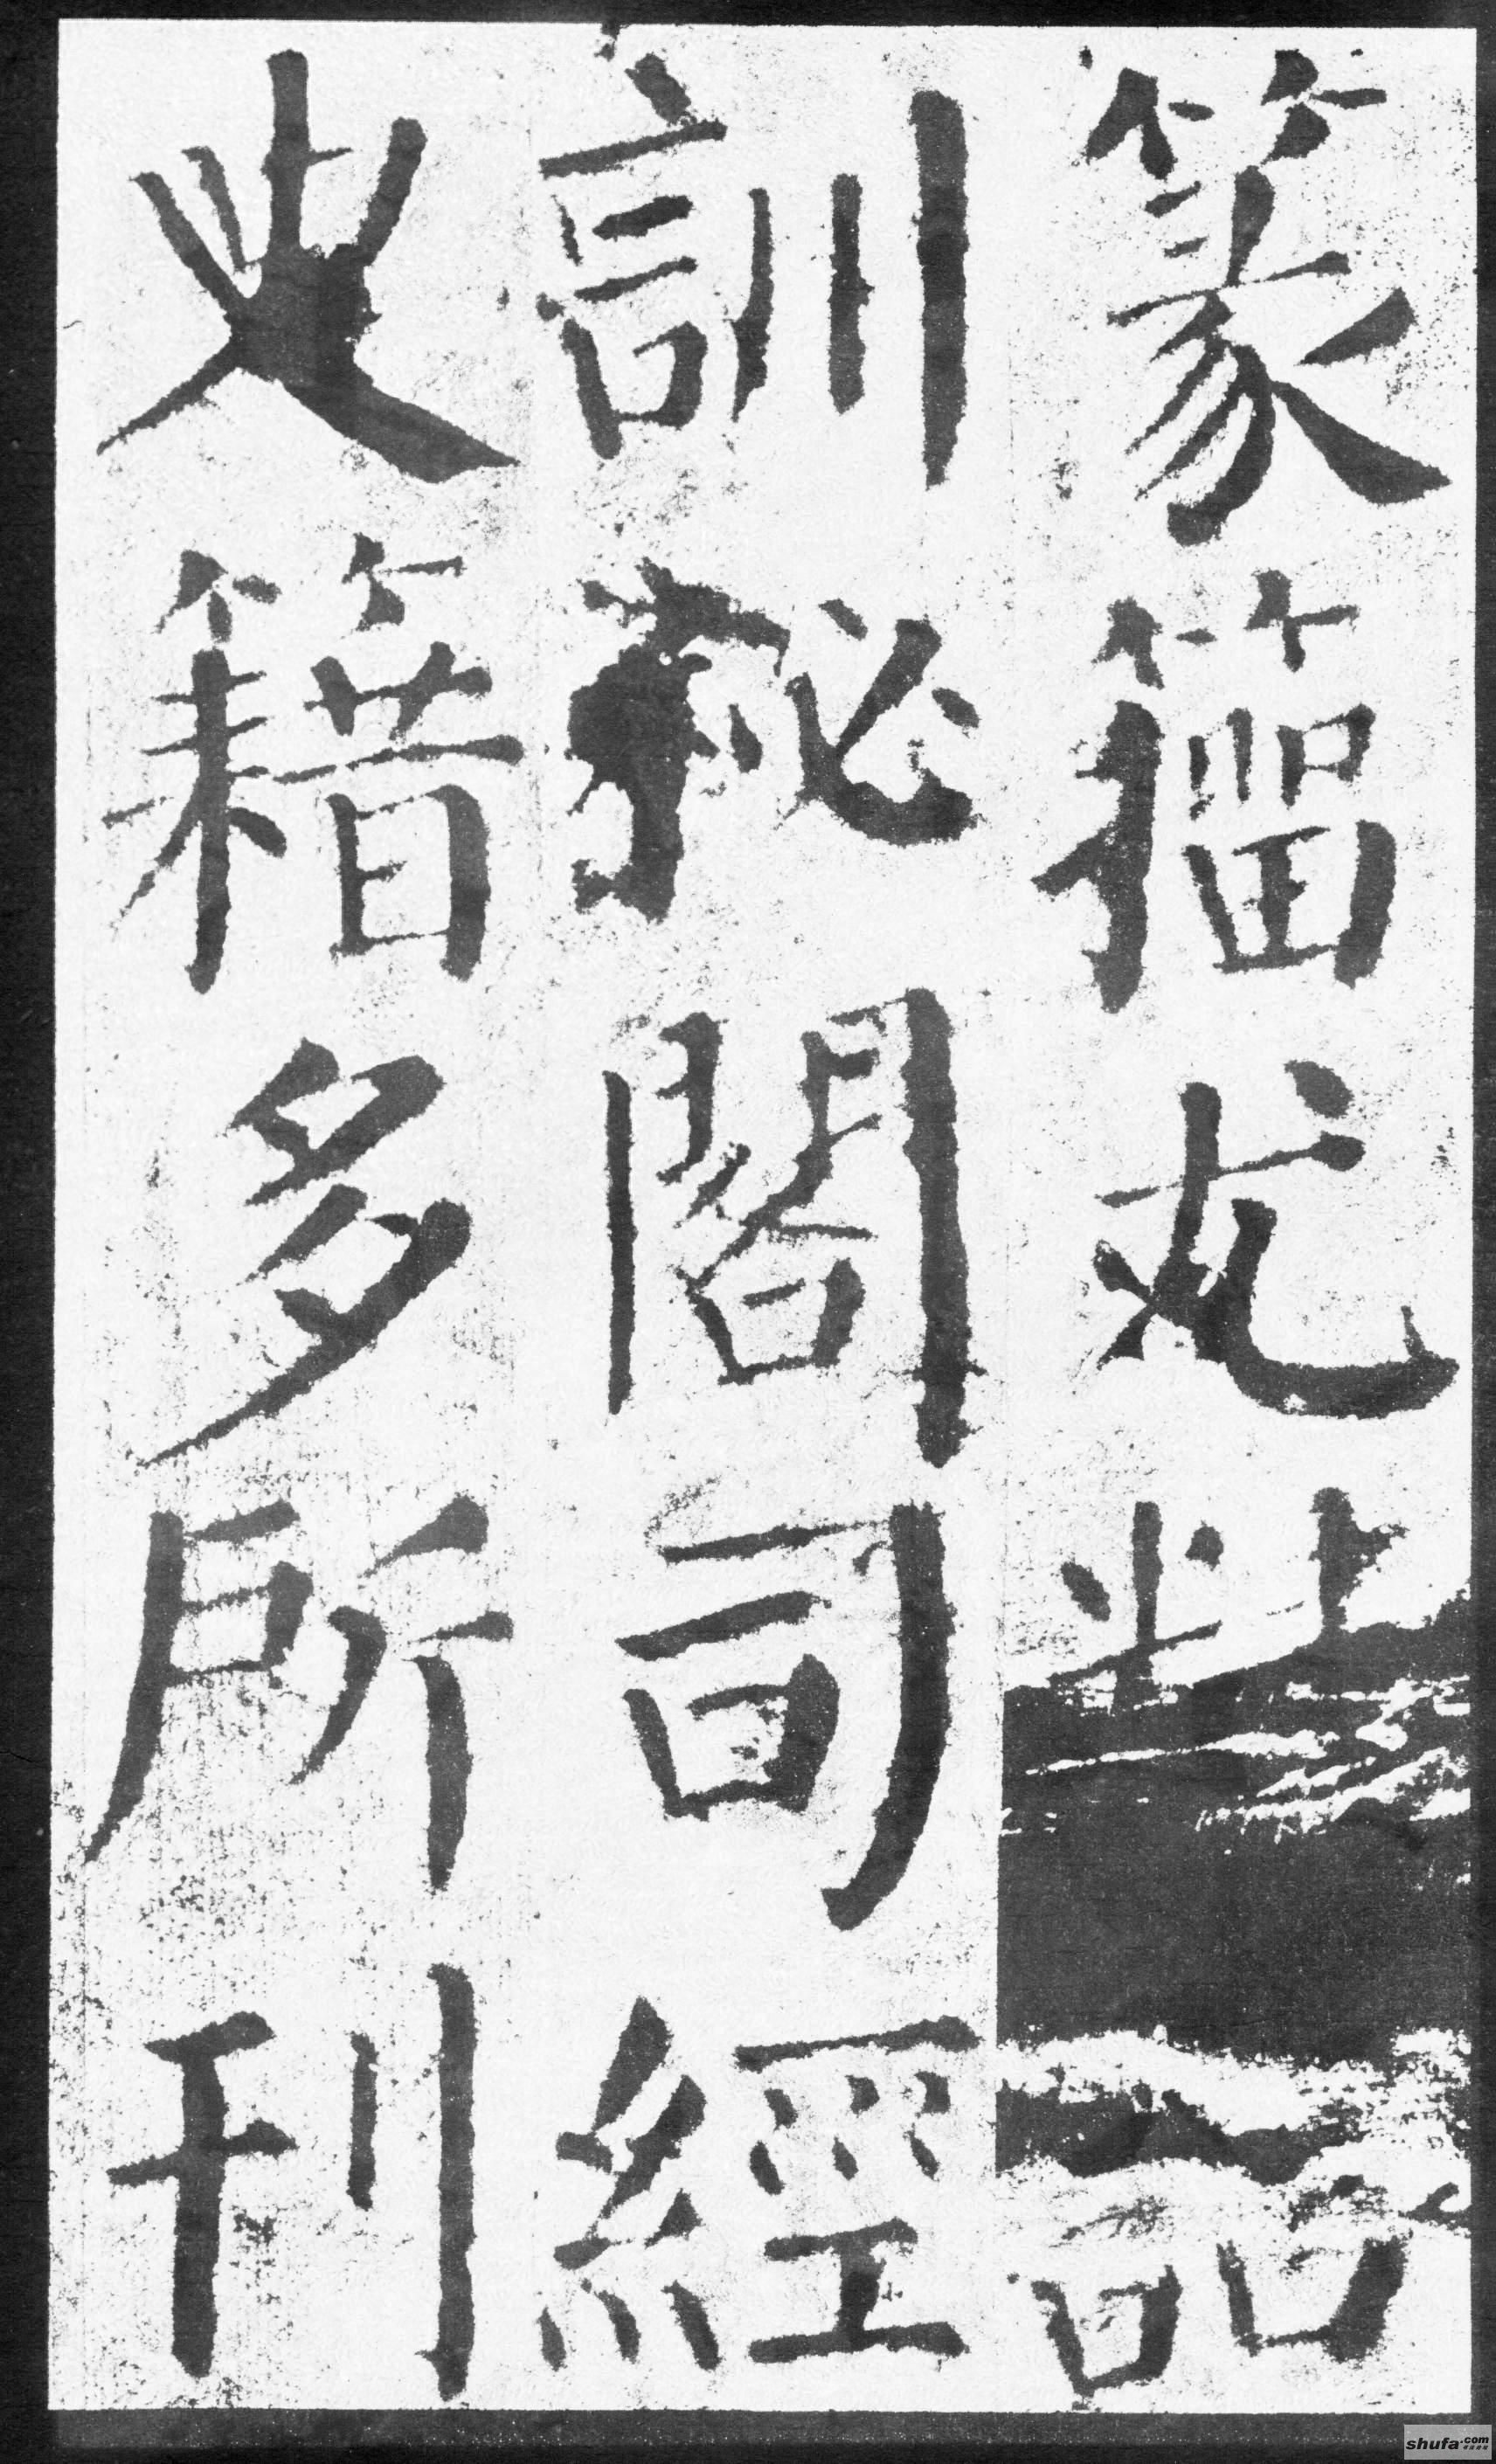 篆籀尤
訓秘閣司經
史籍多所刊
shufa.com